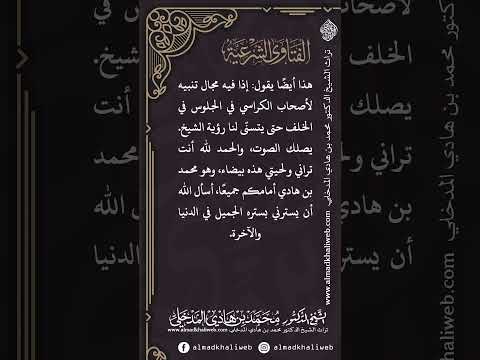 الفتاوى الشرعية
هذا أيضًا يقول: إذا فيه مجال تنبيه
لأصحاب الكراسي في الجلوس في
الخلف حتى يتسنّى لنا رؤية الشيخ.
يصلك الصوت، والحمد لله أنت
تراني ولحيتي هذه بيضاء، وهو محمد
بن هادي أمامكم جميعًا، أسأل الله
أن يسترني بستره الجميل في الدنيا
والآخرة.
الشيخ الدكتور محمد بن هادي المدخلي
تراث الشيخ الدكتور محمد بن هادي المدخلي www.almadkhaliweb.com
almadkhaliweb almadkhaliweb
تراث الشيخ الدكتور محمد بن هادي المدخلي www.almadkhaliweb.com